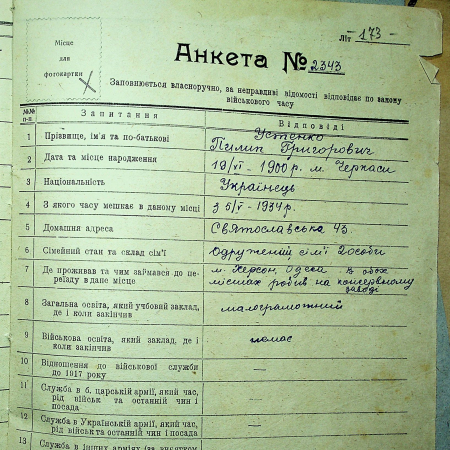 Літ 173-
Місце
для
фотокартки
Анкета № 2343
Заповнюється власноручно, за неправдиві відомості відповідає по закону
військового часу
№№
п-п
Запитання
Відповіді
1 Прізвище, ім'я та по-батькові
Устенко
Пилип Григорович
2 Дата та місце народження
19/VI - 1900 р. м. Черкаси
3 Національність
Українець
4 З якого часу мешкає в даному місці
з 5/V - 1934 р.
5 Домашня адреса
Святославська 43.
6 Сімейний стан та склад сім'ї
Одружений сім'ї 2 особи
7 Де проживав та чим займався до пе-
реїзду в дане місце
м. Херсон, Одеса в обох
містах робив на консервному
заводі
8 Загальна освіта, який учбовий заклад,
де і коли закінчив
малограмотний
9 Військова освіта, який заклад, де і
коли закінчив
немає
10 Відношення до військової служби
до 1917 року
—
11 Служба в б. царській армії, який час,
рід військ та останній чин і
посада
—
12 Служба в Українській армії, який час,
рід військ та останній чин і посада
—
13 Служба в інших арміях (за винятком